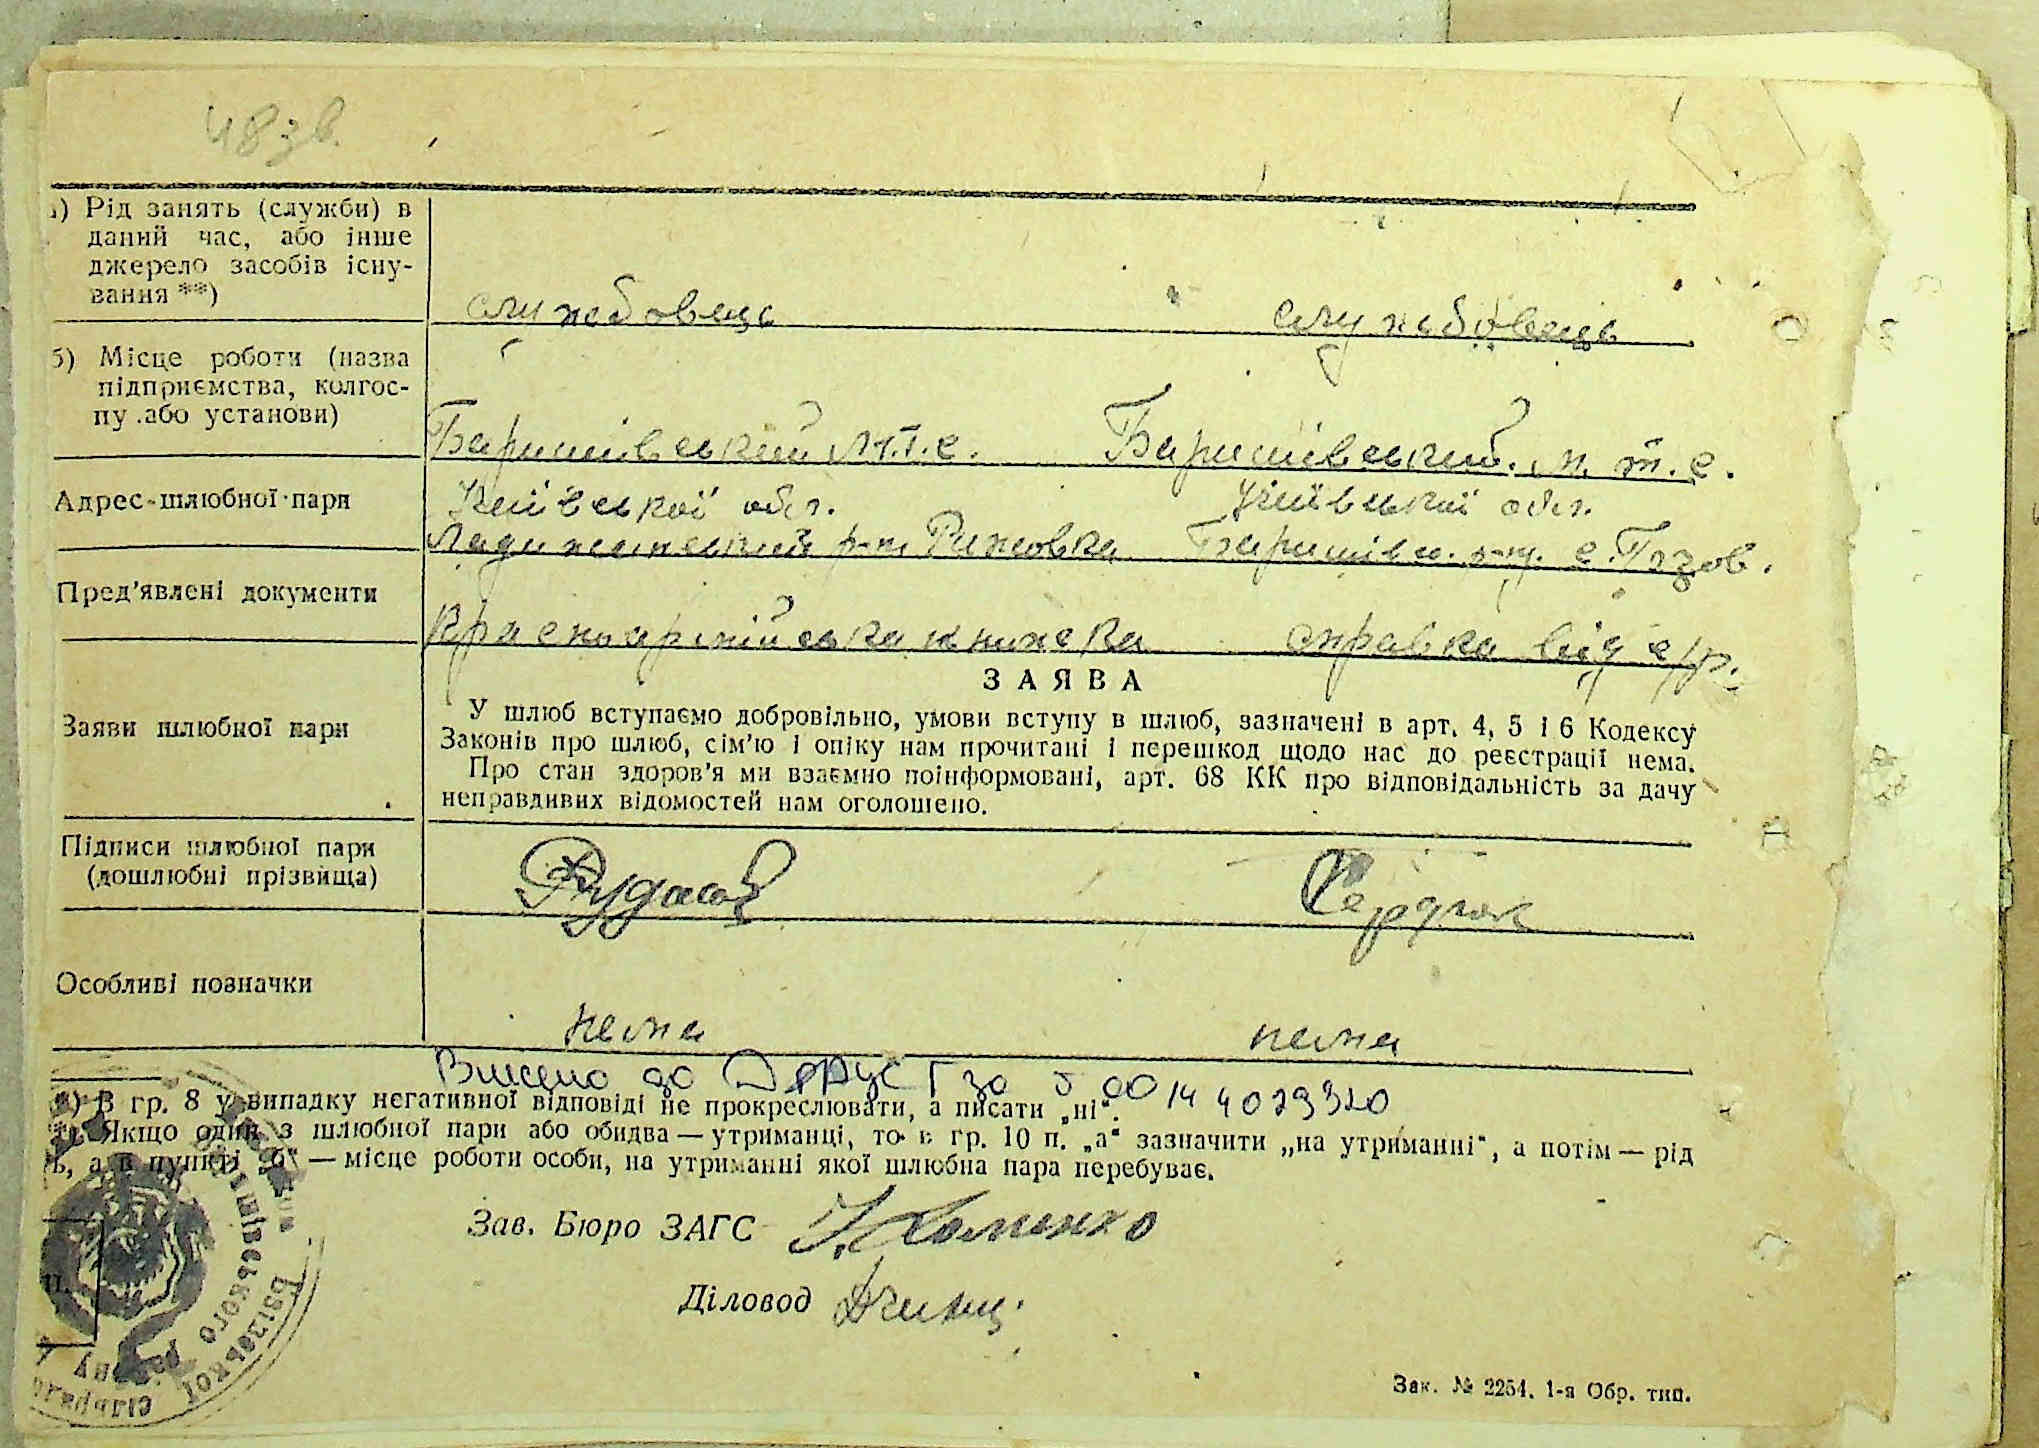 48 зв.
а) Рід занять (служби) в
даний час, або інше
джерело засобів існу-
вання **)
службовець службовець
б) Місце роботи (назва
підприємства, колгос-
пу або установи)
Баришівський л.т.с. Баришівський м.т.с.
Адрес шлюбної пари
Київської обл. Київської обл.
р-н Рижовка Баришівс. р-н. с.
Пред'явлені документи
Красноармійська книжка справка від с/р.
ЗАЯВА
Заяви шлюбної пари
У шлюб вступаємо добровільно, умови вступу в шлюб, зазначені в арт. 4, 5 і 6 Кодексу
Законів про шлюб, сім'ю і опіку нам прочитані і перешкод щодо нас до реєстрації нема.
Про стан здоров'я ми взаємно поінформовані, арт. 68 КК про відповідальність за дачу
неправдивих відомостей нам оголошено.
Підписи шлюбної пари
(дошлюбні прізвища)
Рудас Сердюк
Особливі позначки
нема нема
Внесено до ДРАЦСГ за 00144029320
*) В гр. 8 у випадку негативної відповіді не прокреслювати, а писати „ні“.
**) Якщо один з шлюбної пари або обидва — утриманці, то в гр. 10 п. „а“ зазначити „на утриманні“, а потім — рід
ь, а в пункті „б“ — місце роботи особи, на утриманні якої шлюбна пара перебуває.
Зав. Бюро ЗАГС
Діловод
Зак. № 2254. 1-я Обр. тип.